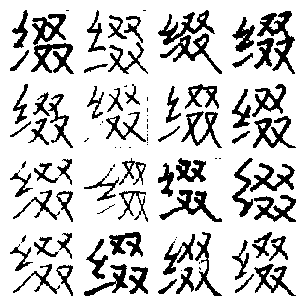 缀缀缀缀
缀缀缀缀
缀缀缀缀
缀缀缀缀